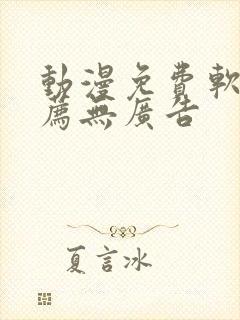 動漫免費軟
薦無廣告
夏言冰